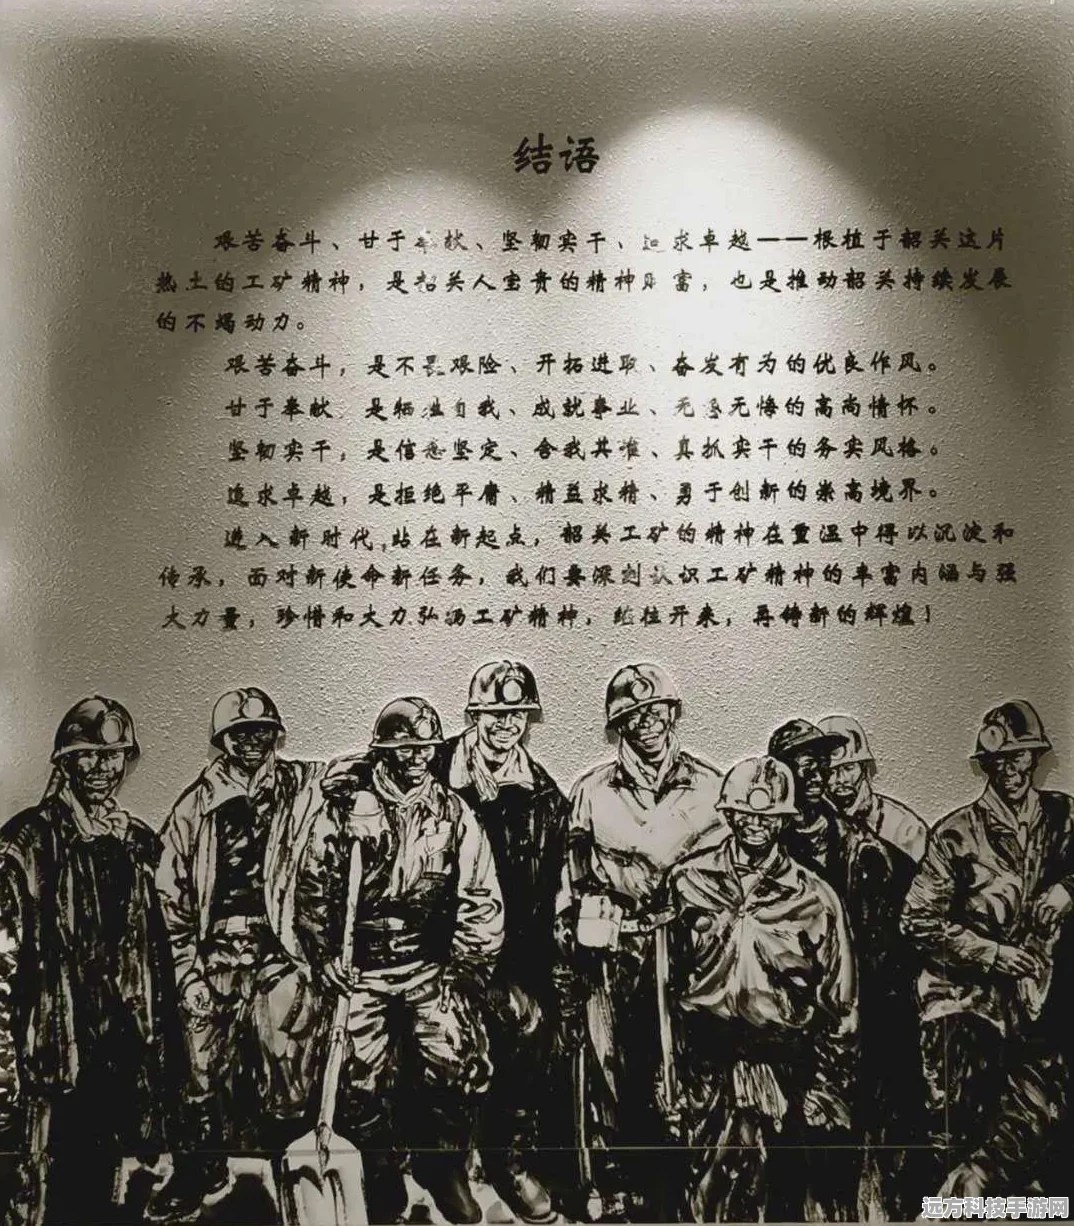 结语
艰苦奋斗、甘于奉献、坚韧实干、追求卓越——根植于韶关这片
热土的工矿精神，是韶关人宝贵的精神财富，也是推动韶关持续发展
的不竭动力。
艰苦奋斗，是不畏艰险、开拓进取、奋发有为的优良作风。
甘于奉献 是牺牲自我、成就事业、无怨无悔的高尚情怀。
坚韧实干，是信念坚定、舍我其谁、真抓实干的务实风格。
追求卓越，是拒绝平庸、精益求精、勇于创新的崇高境界。
进入新时代,站在新起点，韶关工矿的精神在重温中得以沉淀和
传承，面对新使命新任务，我们要深刻认识工矿精神的丰富内涵与强
大力量，珍惜和大力弘扬工矿精神，继往开来，再铸新的辉煌！
远方科技手游网